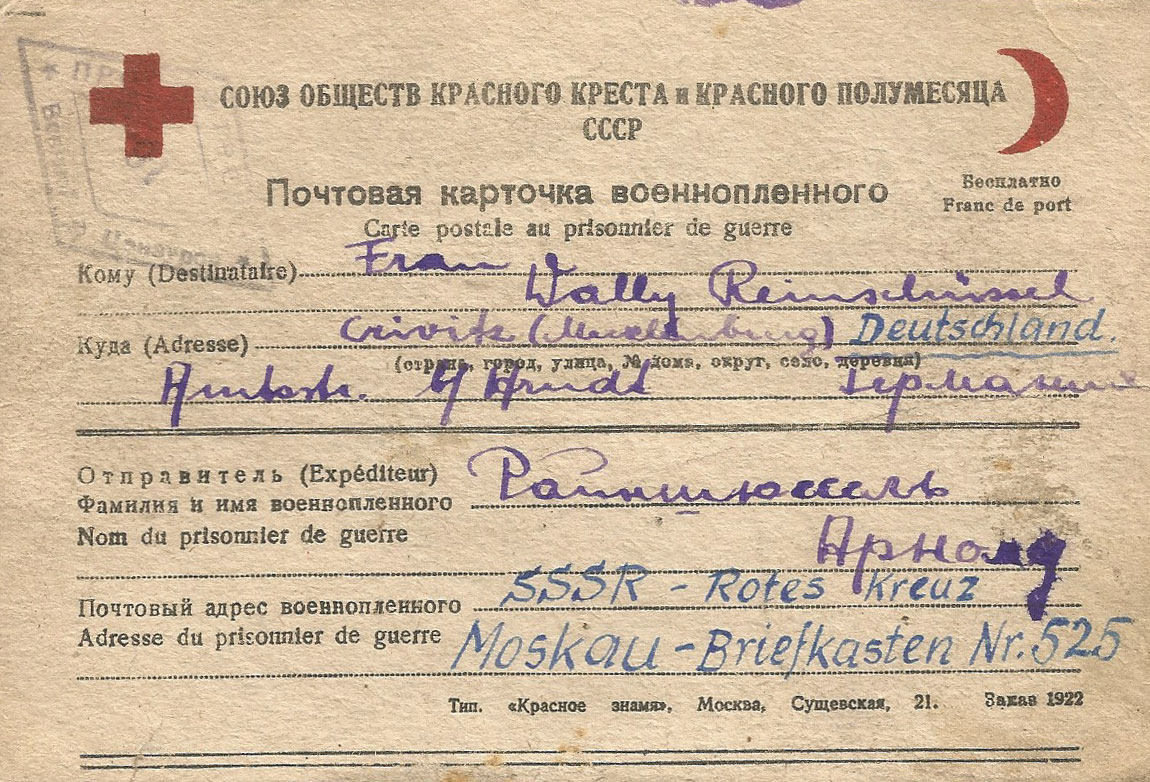 СОЮЗ ОБЩЕСТВ КРАСНОГО КРЕСТА и КРАСНОГО ПОЛУМЕСЯЦА
СССР
Почтовая карточка военнопленного
Бесплатно
Franc de port
Carte postale au prisonnier de guerre
Кому (Destinataire) Frau
Wally Reinschüssel
Куда (Adresse) Crivitz (Mecklenburg) Deutschland.
(страна, город, улица, № дома, округ, село, деревня)
Amtsstr. Arndt Германия
Отправитель (Expéditeur)
Фамилия и имя военнопленного Райншюссель
Nom du prisonnier de guerre
Арнолд
Почтовый адрес военнопленного SSSR - Rotes Kreuz
Adresse du prisonnier de guerre Moskau - Briefkasten Nr. 525
Тип. «Красное знамя», Москва, Сущевская, 21. Заказ 1922